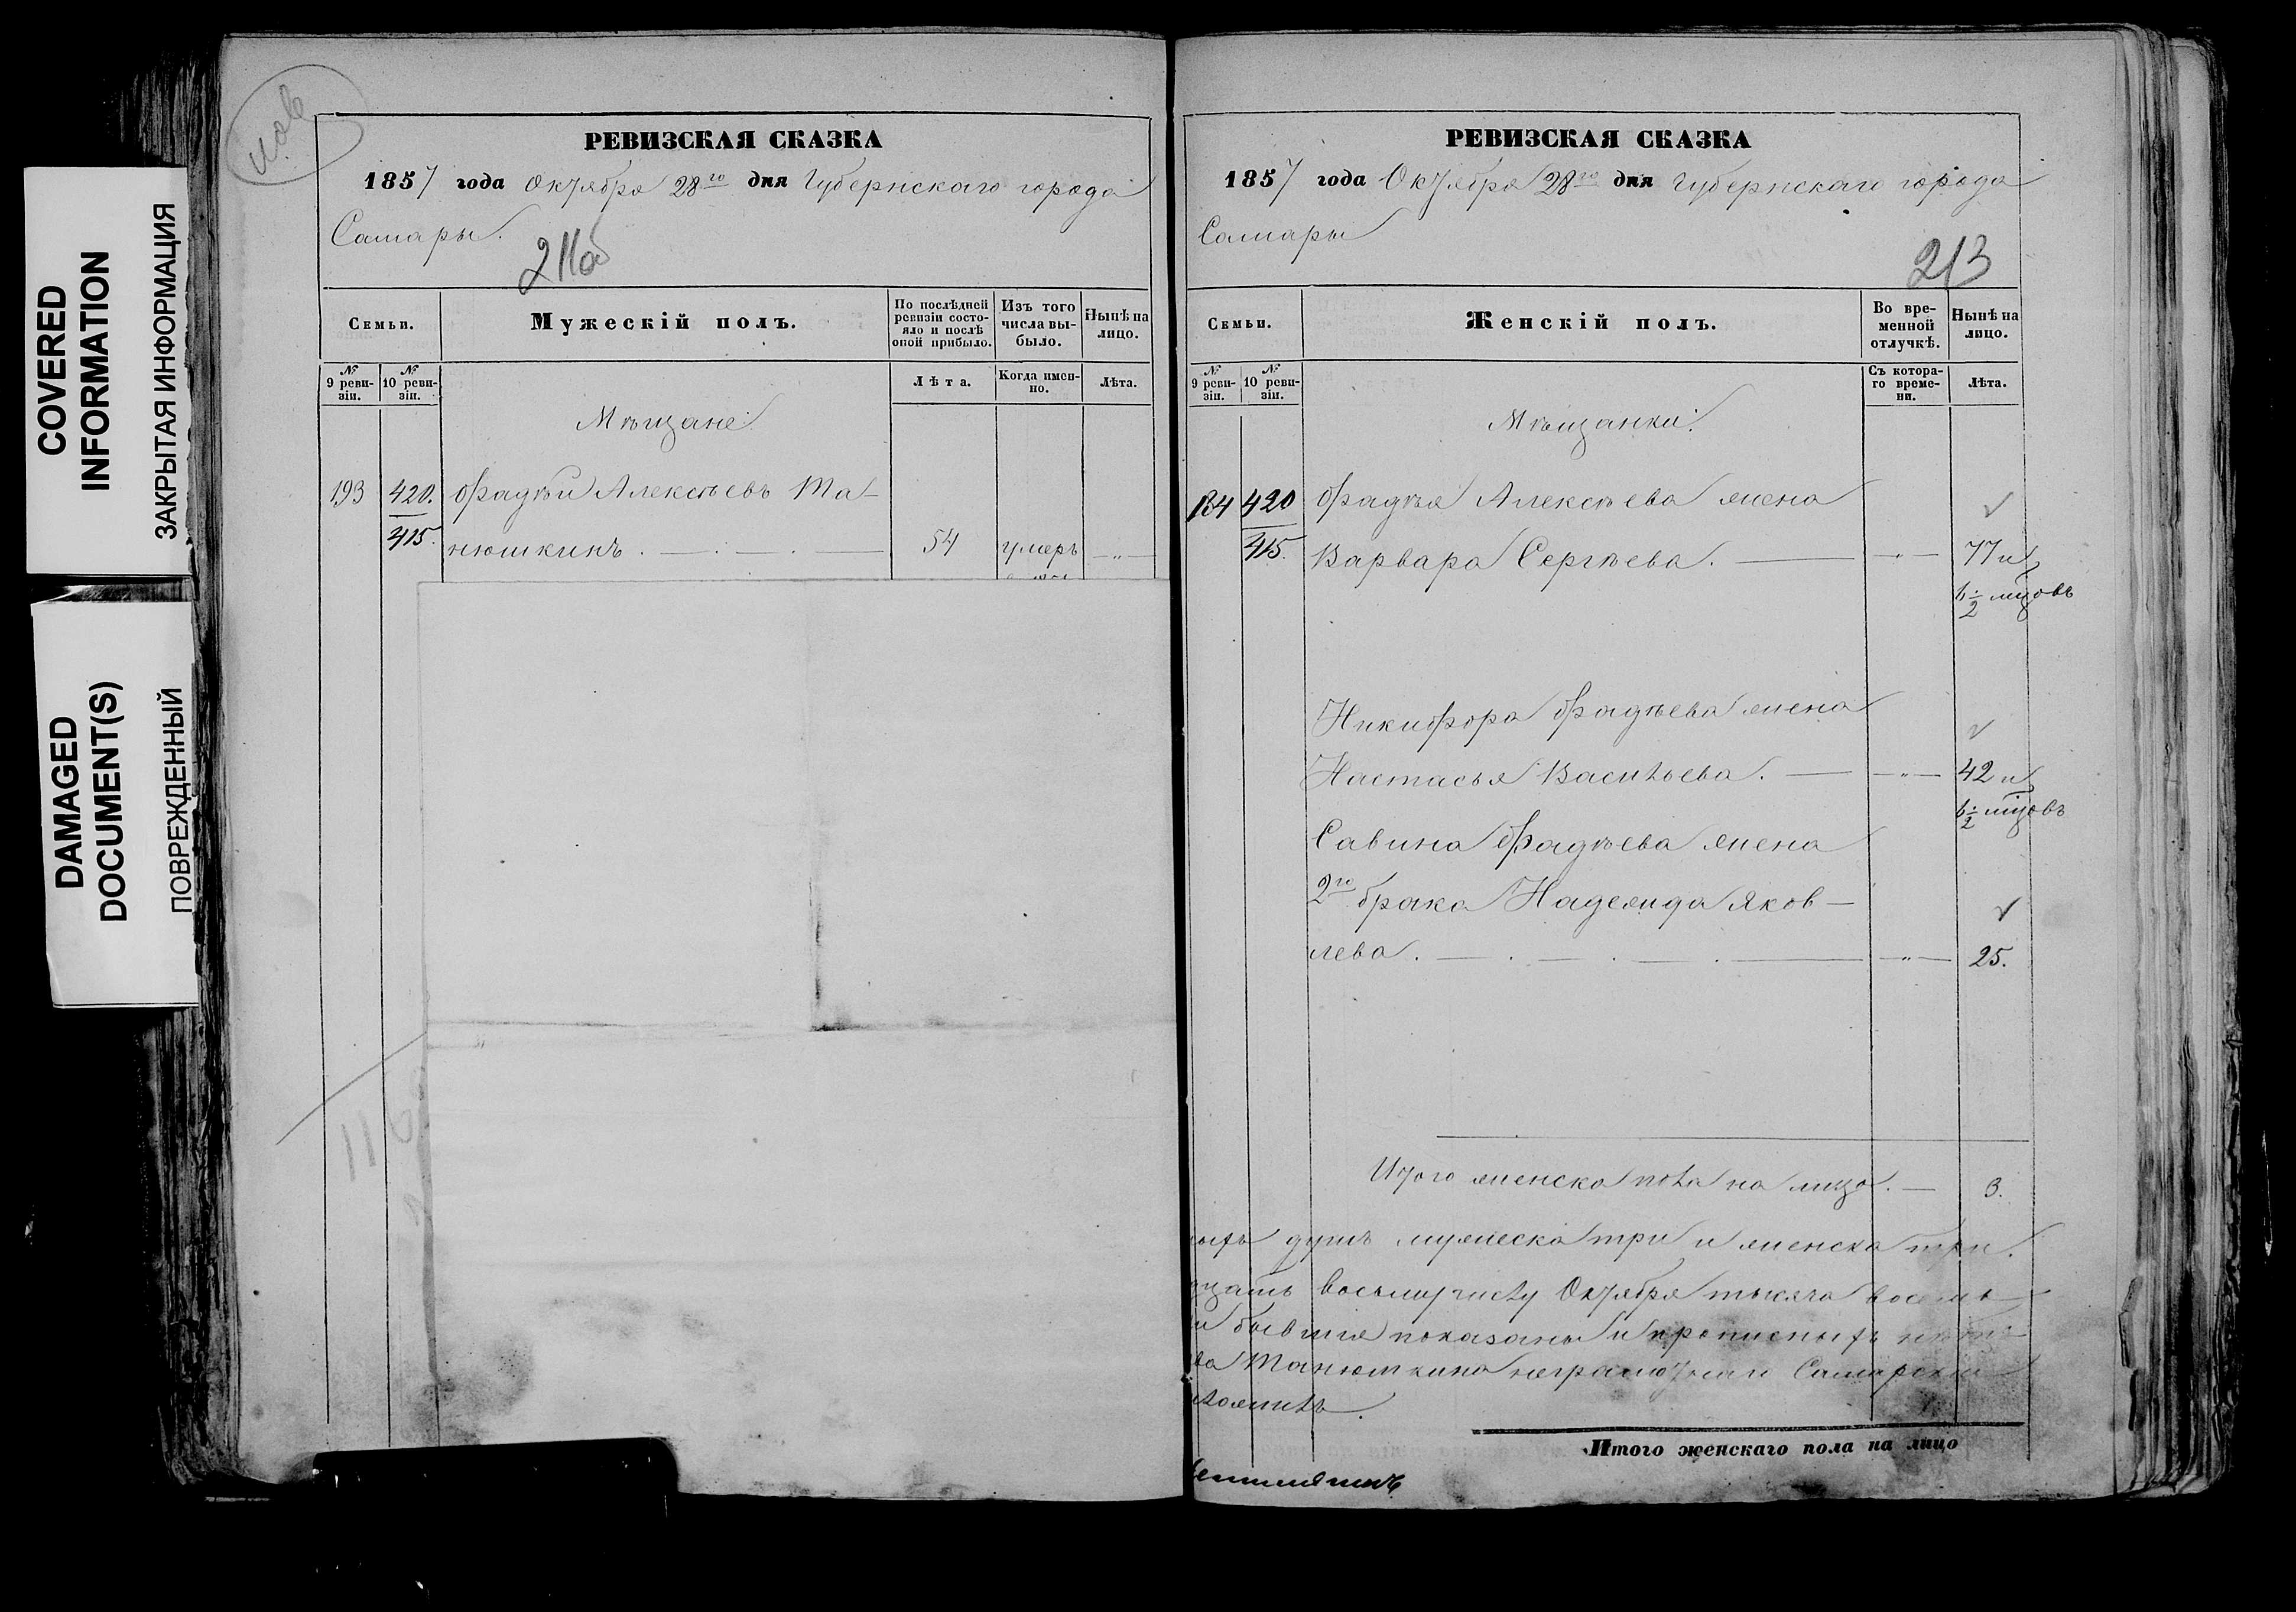 COVERED
INFORMATION
ЗАКРЫТАЯ ИНФОРМАЦИЯ
DAMAGED
DOCUMENT(S)
ПОВРЕЖДЕННЫЙ
РЕВИЗСКАЯ СКАЗКА
1857 года Октября 28го дня Губернскаго города
Самары.
Семьи.
Мужескій полъ.
По послѣдней
ревизіи состо-
яло и послѣ
оной прибыло.
Изъ того
числа вы-
было.
Нынѣ на
лицо.
№
9 реви-
зіи.
№
10 реви-
зіи.
Лѣта.
Когда имен-
но.
Лѣта.
Мѣщане
193 420. Фадѣй Алексѣевъ Та-
415. нюшкинъ. 54 умеръ
РЕВИЗСКАЯ СКАЗКА
1857 года Октября 28го дня Губернскаго города
Самары
213
Семьи.
Женскій полъ.
Во вре-
менной
отлучкѣ.
Нынѣ на
лицо.
№
9 реви-
зіи.
№
10 реви-
зіи.
Съ котора-
го време-
ни.
Лѣта.
Мѣщанки.
420 Фадѣя Алексѣева жена
415. Варвара Сергѣева. 77 и
6 1/2 мцовъ
Никифора Фадѣева жена
Настасья Васильева. 42 и
6 1/2 мцовъ
Савина Фадѣева жена
2го брака Надежда Яков-
лева. 25.
Итого женска пола на лицо. 3.
душъ мужеска три и женска три.
восьмаго числа Октября тысяча восемь
бывшия показаны и прописныхъ
Танюшкина неграмотнаго Самарскій
Итого женскаго пола на лицо